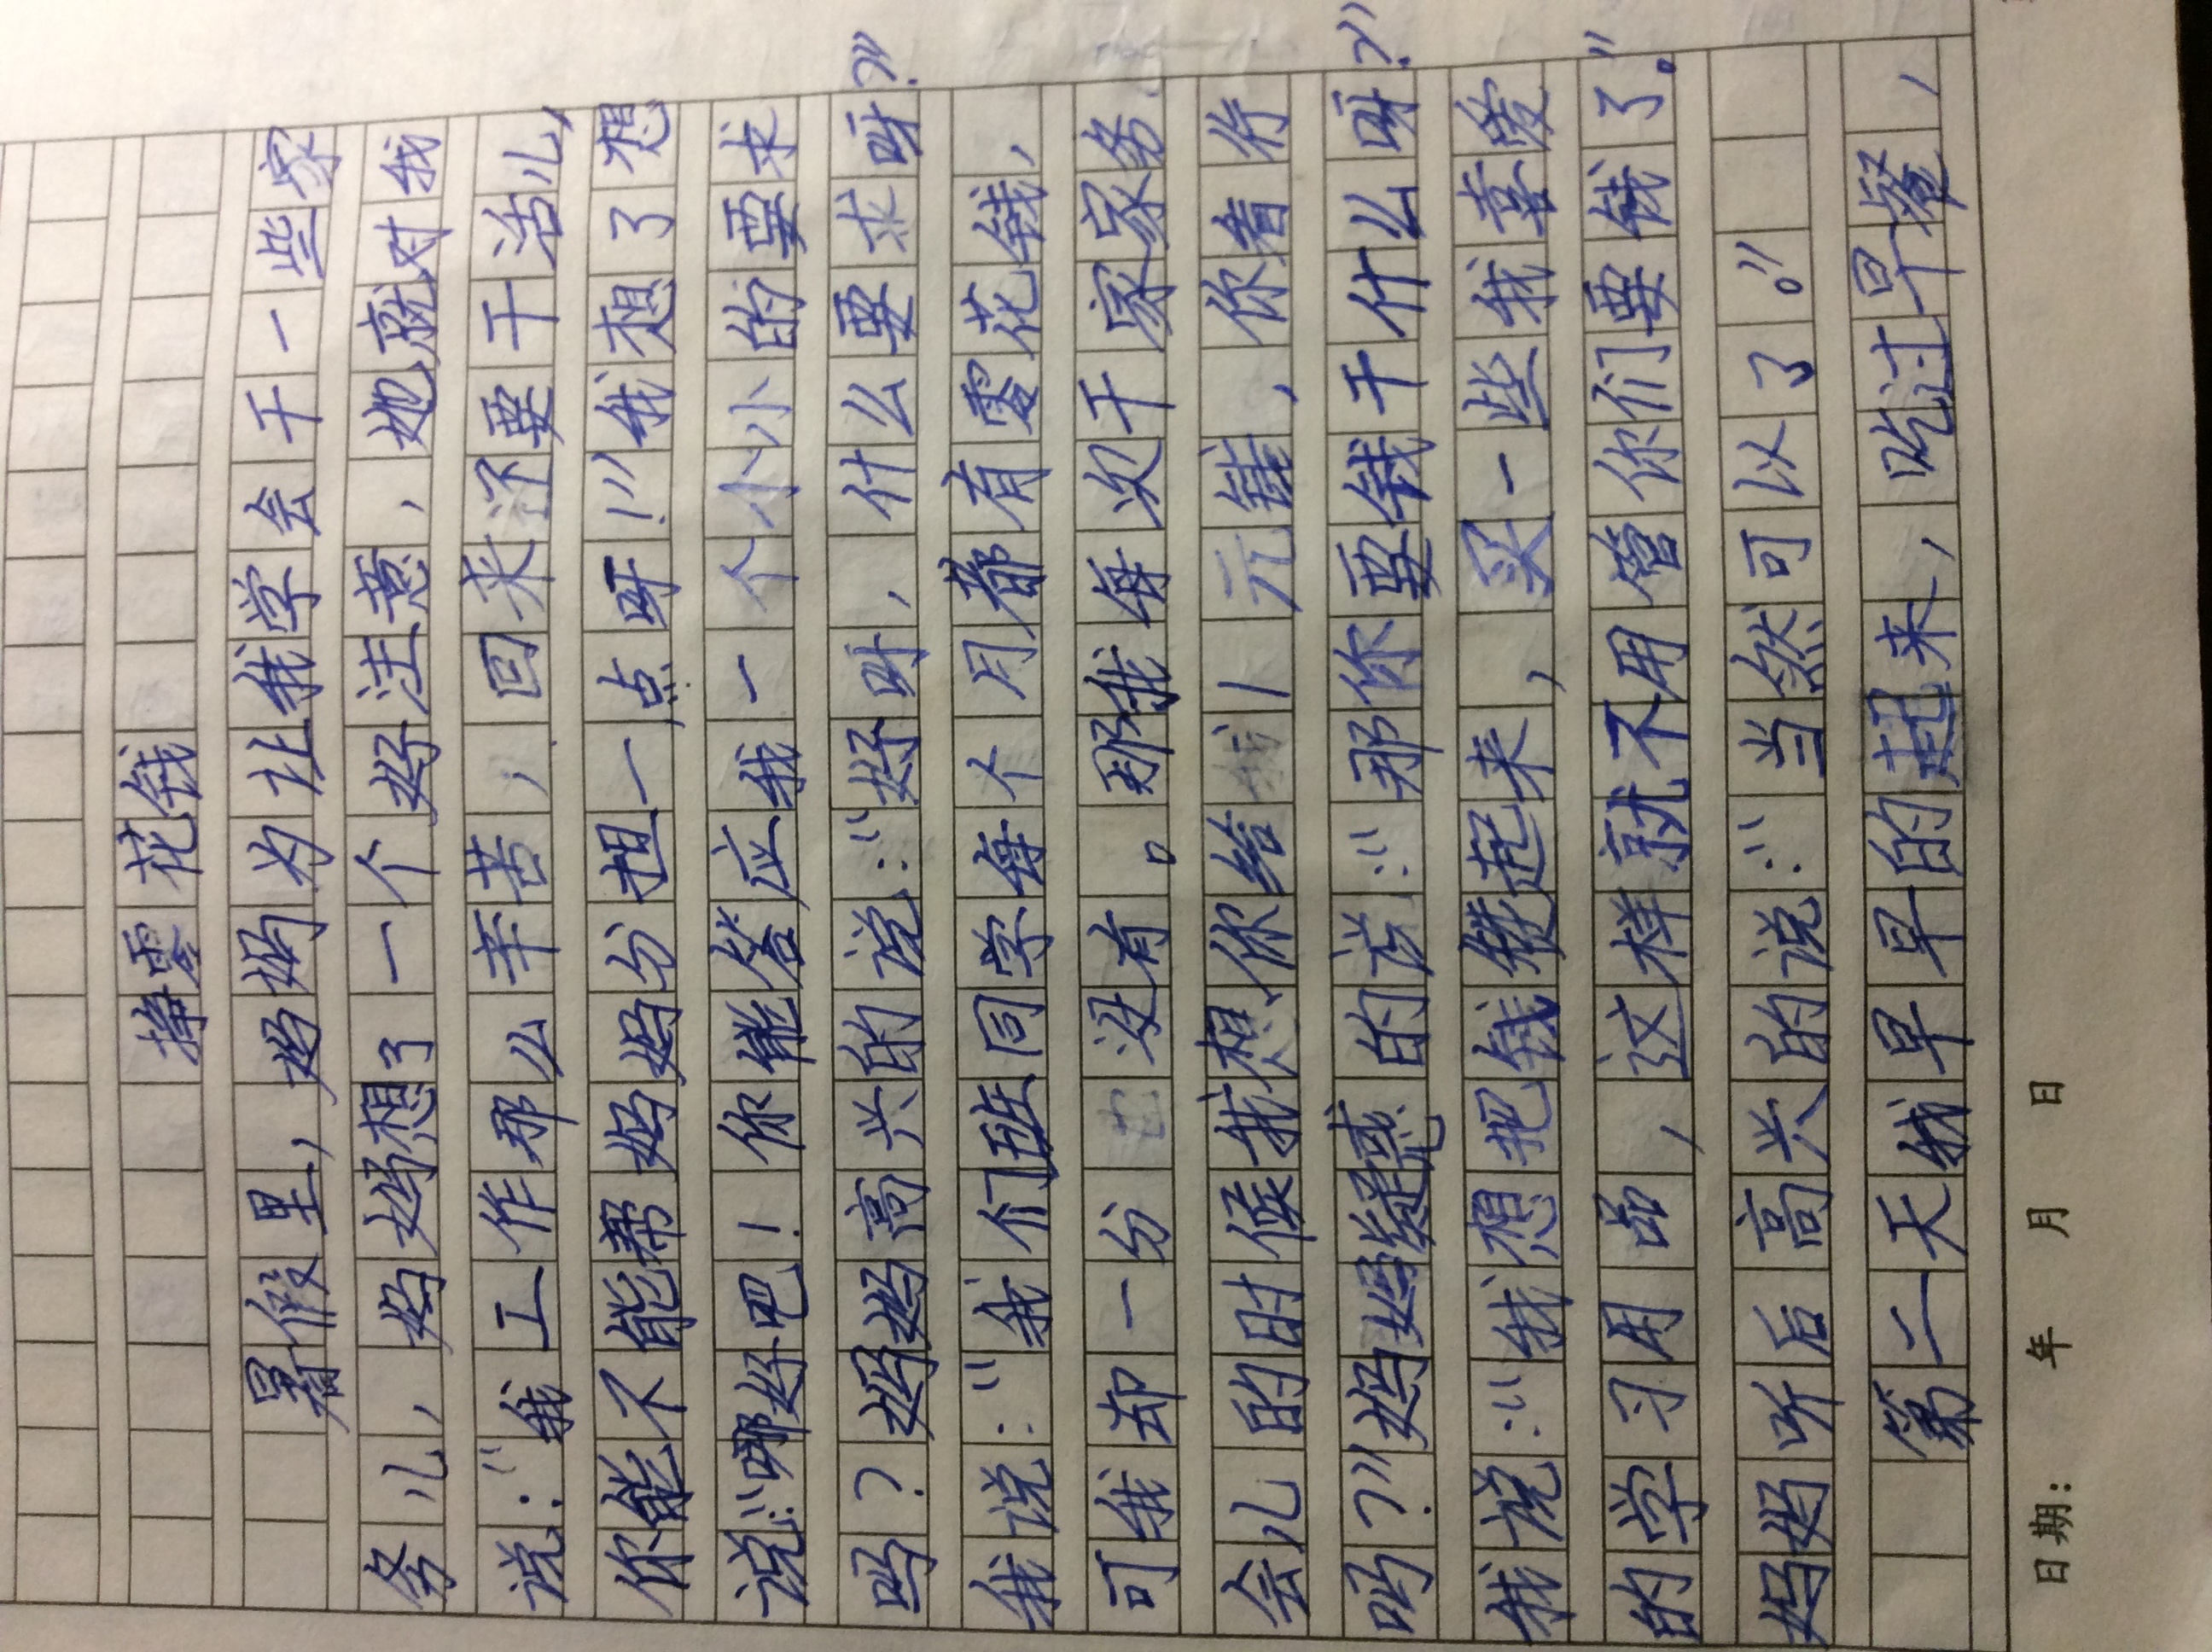 挣零花钱
暑假里，妈妈为让我学会干一些家
务儿，妈妈想了一个好注意，她就对我
说：“我工作那么辛苦，回来还要干活儿，
你能不能帮妈妈分担一点呀！”我想了想
说：“哪好吧！你能答应我一个小小的要求
吗？妈妈高兴的说：“好呀，什么要求呀？”
我说：“我们班同学每个月都有零花钱，
可我却一分没有。那我每次干家家务
会儿的时候我想你给我1元钱，你看行
吗？”妈妈疑惑的说：“那你要钱干什么呀？”
我说：“我想把钱攒起来，买一些我喜爱
的学习用品，这样就不用管你们要钱了。”
妈妈听后高兴的说：“当然可以了。”
第二天我早早的起来，吃过早餐，
日期： 年 月 日